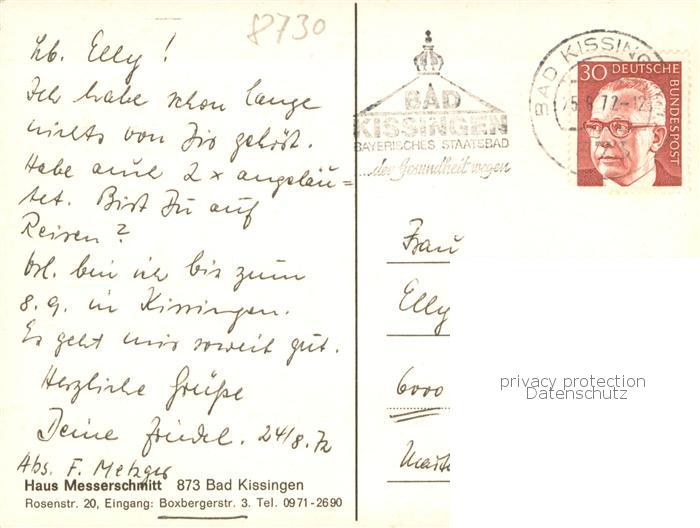 8730
Lb. Elly!
Ich habe schon lange
nichts von Dir gehört.
Habe auch 2 x angeläu=
tet. Bist Du auf
Reisen?
bin ich bis zum
8. 9. in Kissingen.
Es geht mir soweit gut.
Herzliche Grüße
Deine Friedel. 24/8.72
Abs. F. Metzger
Haus Messerschmitt 873 Bad Kissingen
Rosenstr. 20, Eingang: Boxbergerstr. 3. Tel. 0971-2690
BAD
KISSINGEN
BAYERISCHES STAATSBAD
...der Gesundheit wegen
BAD KISSING
25.8.72-12
30 DEUTSCHE
BUNDESPOST
Frau
Elly
6000
privacy protection
Datenschutz